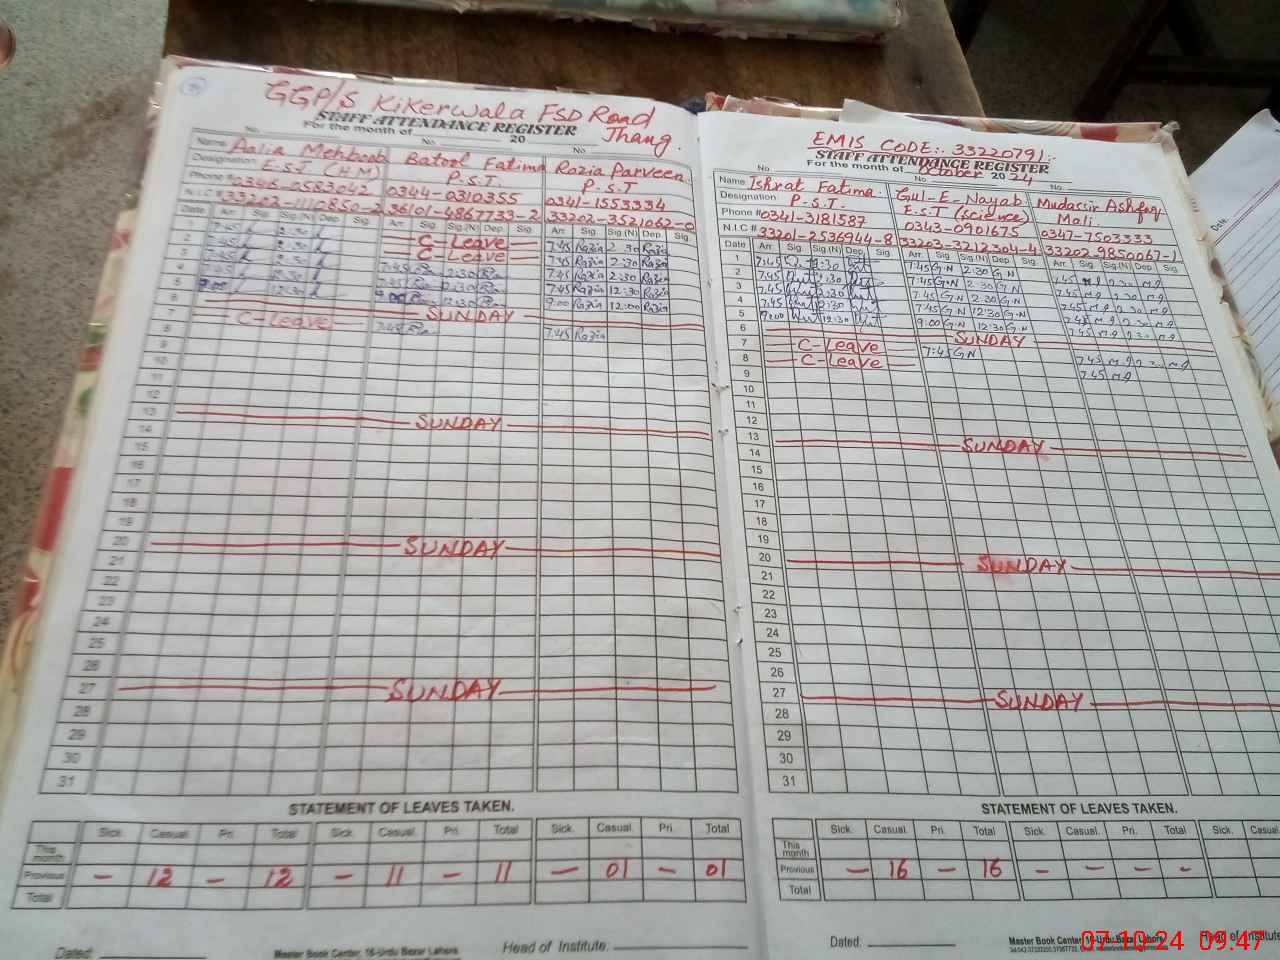 GGP/S Kikerwala FSD Road
Jhang.
STAFF ATTENDANCE REGISTER
For the month of 20
No. No. No.
Name Aalia Mehboob Batool Fatima Razia Parveen.
Designation E.S.T (H.M) P.S.T. P.S.T
Phone # 0346-0583042 0344-0310355 0341-1553334
N.I.C # 33202-1110850-2 36101-4867733-2 33202-3521062-0
Date Arr. Sig. Sig.(N) Dep. Sig. Arr. Sig. Sig.(N) Dep. Sig. Arr. Sig. Sig.(N) Dep. Sig.
1 7.45 2:30 C-Leave 7.45 Razia 2:30 Razia
2 7.45 2:30 C-Leave 7.45 Razia 2:30 Razia
3 7.45 2:30 7.45 2:30 7.45 Razia 2:30 Razia
4 7.45 12:30 7.45 12:30 7.45 Razia 12:30 Razia
5 9:00 12:30 9:00 12:30 9:00 Razia 12:00 Razia
6 SUNDAY
7 C-Leave 7.45 7.45 Razia
8
9
10
11
12
13 SUNDAY
14
15
16
17
18
19
20 SUNDAY
21
22
23
24
25
26
27 SUNDAY
28
29
30
31
STATEMENT OF LEAVES TAKEN.
Sick. Casual. Pri. Total Sick. Casual. Pri. Total Sick. Casual. Pri. Total
This month
Previous - 12 - 12 - 11 - 11 - 01 - 01
Total
Dated: Master Book Center, 16-Urdu Bazar Lahore Head of Institute:
EMIS CODE:. 33220791:.
STAFF ATTENDANCE REGISTER
For the month of October 2024
No. No. No.
Name Ishrat Fatima. Gul-E-Nayab Mudassir Ashfaq
Designation P.S.T. E.S.T (science) Mali.
Phone # 0341-3181587 0343-0901675 0347-7503333
N.I.C # 33201-2536944-8 33203-3212304-4 33202-9850067-1
Date Arr. Sig. Sig.(N) Dep. Sig. Arr. Sig. Sig.(N) Dep. Sig. Arr. Sig. Sig.(N) Dep. Sig.
1 7.45 2:30 7:45 G.N 2:30 G.N 7.45 2.30
2 7.45 2:30 7:45 G.N 2:30 G.N 7.45 2.30
3 7.45 2:30 7:45 G.N 2:30 G.N 7.45 2.30
4 7.45 12:30 7.45 G.N 12:30 G.N 7.45 2.30
5 9:00 12:30 9:00 G.N 12:30 G.N 7.45 2.30
6 SUNDAY
7 C-Leave 7:45 G.N 7.45
8 C-Leave 7.45
9
10
11
12
13 SUNDAY
14
15
16
17
18
19
20 SUNDAY
21
22
23
24
25
26
27 SUNDAY
28
29
30
31
STATEMENT OF LEAVES TAKEN.
Sick. Casual. Pri. Total Sick. Casual. Pri. Total Sick. Casual.
This month
Previous - 16 - 16 - - - -
Total
Dated: Master Book Center, 16-Urdu Bazar Lahore Head of Institute
07.10.24 09:47
Date